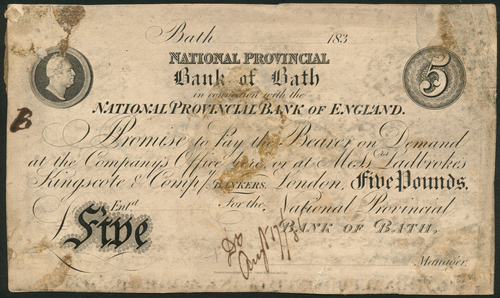 Bath 183
NATIONAL PROVINCIAL
Bank of Bath
5
in connection with the
NATIONAL PROVINCIAL BANK OF ENGLAND.
B
I Promise to Pay the Bearer on Demand
at the Company's Office here, or at Mess.rs Ladbrokes
Kingscote & Comp.y BANKERS, London, Five Pounds.
£ Five Ent.d For the National Provincial
BANK OF BATH,
Do
Manager.